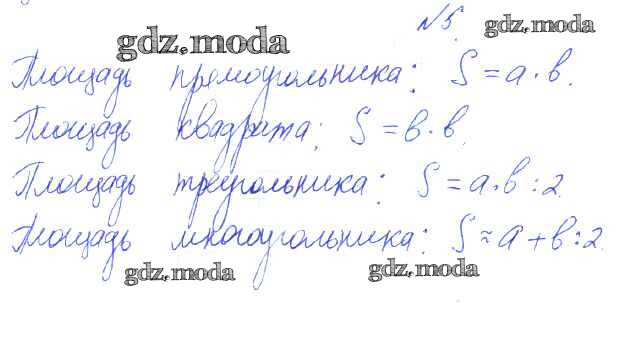 №5.
gdz.moda
gdz.moda
Площадь прямоугольника: S = a · b.
Площадь квадрата: S = b · b.
Площадь треугольника: S = a · b : 2.
Площадь многоугольника: S ≈ a + b : 2.
gdz.moda
gdz.moda